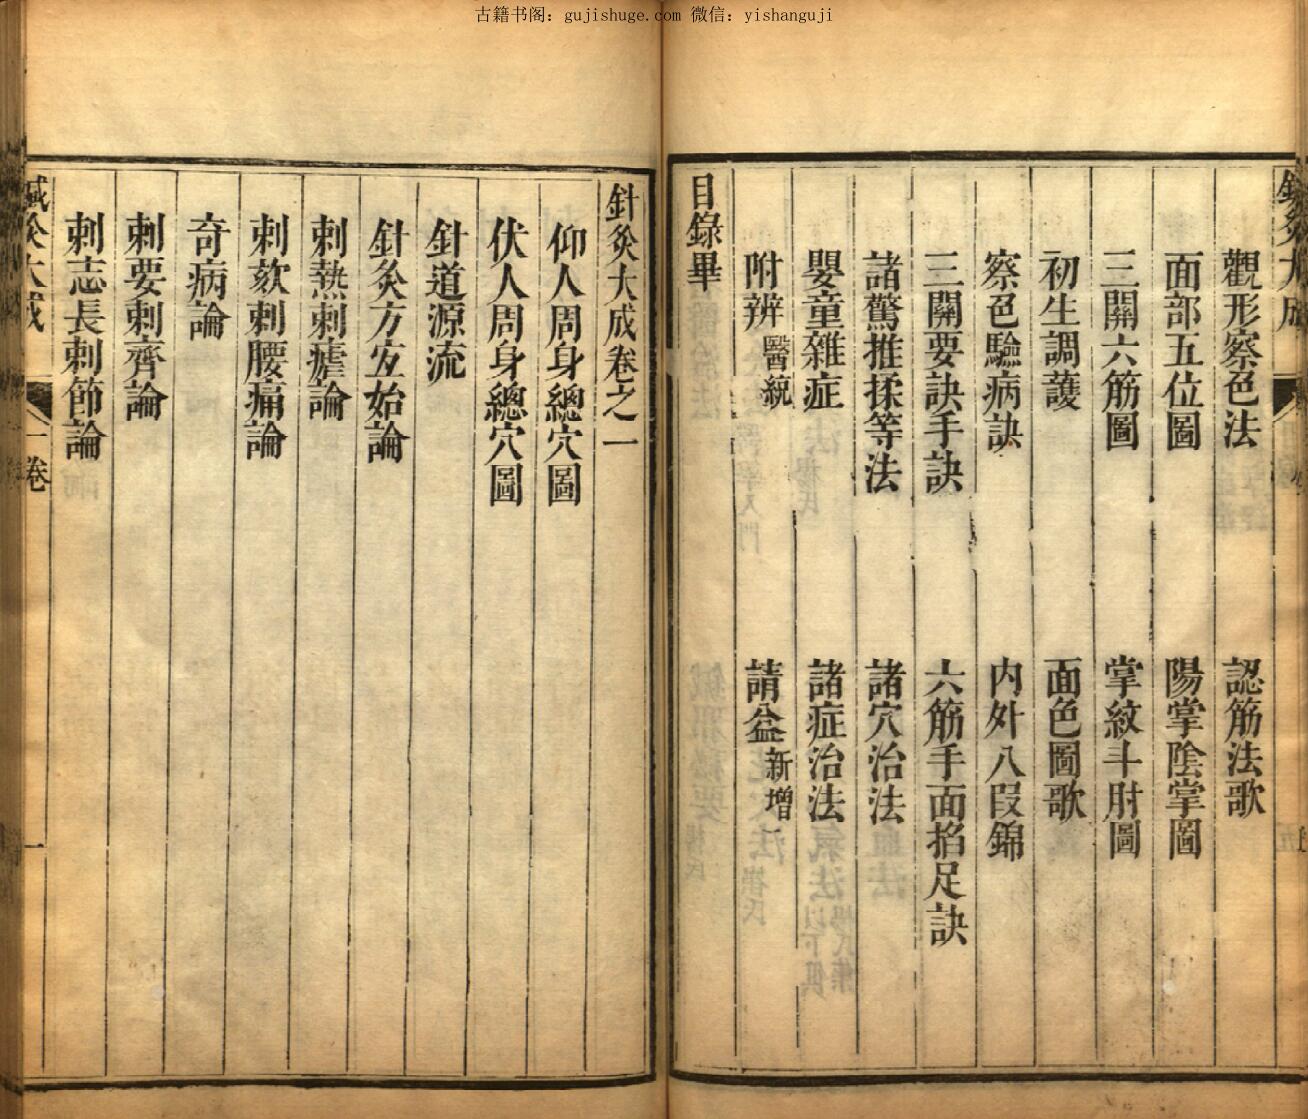 古籍书阁：gujishuge.com 微信：yishanguji
觀形察色法 認筋法歌
面部五位圖 陽掌陰掌圖
三關六筋圖 掌紋斗肘圖
初生調護 面色圖歌
察色驗病訣 内外八叚錦
三關要訣手訣 六筋手面掐足訣
諸驚推揉等法 諸穴治法
嬰童雜症 諸症治法
附辨醫統 請益新增
目錄畢
針灸大成卷之一
仰人周身總穴圖
伏人周身總穴圖
針道源流
針灸方宐始論
刺熱刺瘧論
刺欬刺腰痛論
奇病論
刺要刺齊論
刺志長刺節論
鍼灸大成 一卷 一